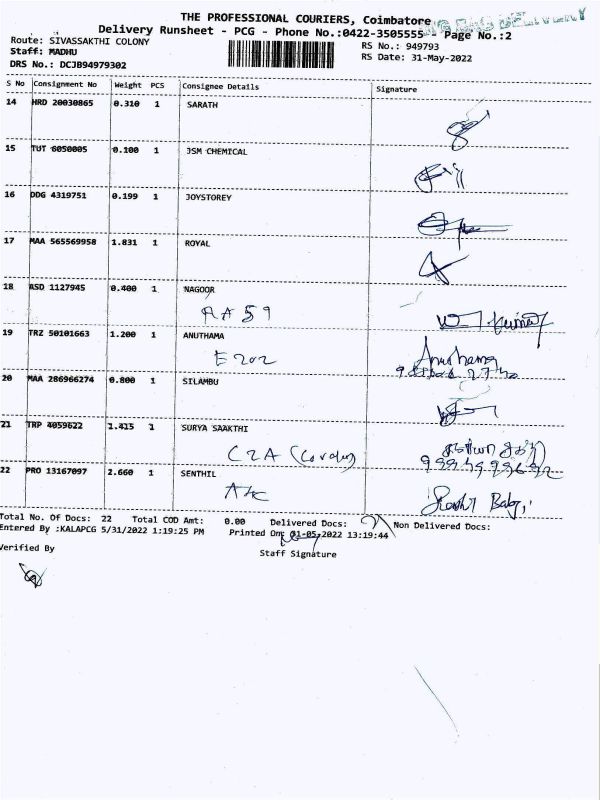 THE PROFESSIONAL COURIERS, Coimbatore
BAG DELIVERY
Delivery Runsheet - PCG - Phone No.:0422-3505555 Page No.:2
Route: SIVASSAKTHI COLONY RS No.: 949793
Staff: MADHU RS Date: 31-May-2022
DRS No.: DCJB94979302
S No Consignment No Weight PCS Consignee Details Signature
14 HRD 20030865 0.310 1 SARATH
15 TUT 6050005 0.100 1 JSM CHEMICAL
16 DDG 4319751 0.199 1 JOYSTOREY
17 MAA 565569958 1.831 1 ROYAL
18 ASD 1127945 0.400 1 NAGOOR
AA 59
19 TRZ 50101663 1.200 1 ANUTHAMA
E202 Anuthama
20 MAA 286966274 0.800 1 SILAMBU
21 TRP 4059622 1.415 1 SURYA SAAKTHI
C2A
22 PRO 13167097 2.660 1 SENTHIL
Babu
Total No. Of Docs: 22 Total COD Amt: 0.00 Delivered Docs: Non Delivered Docs:
Entered By :KALAPCG 5/31/2022 1:19:25 PM Printed On: 31-05-2022 13:19:44
Verified By Staff Signature